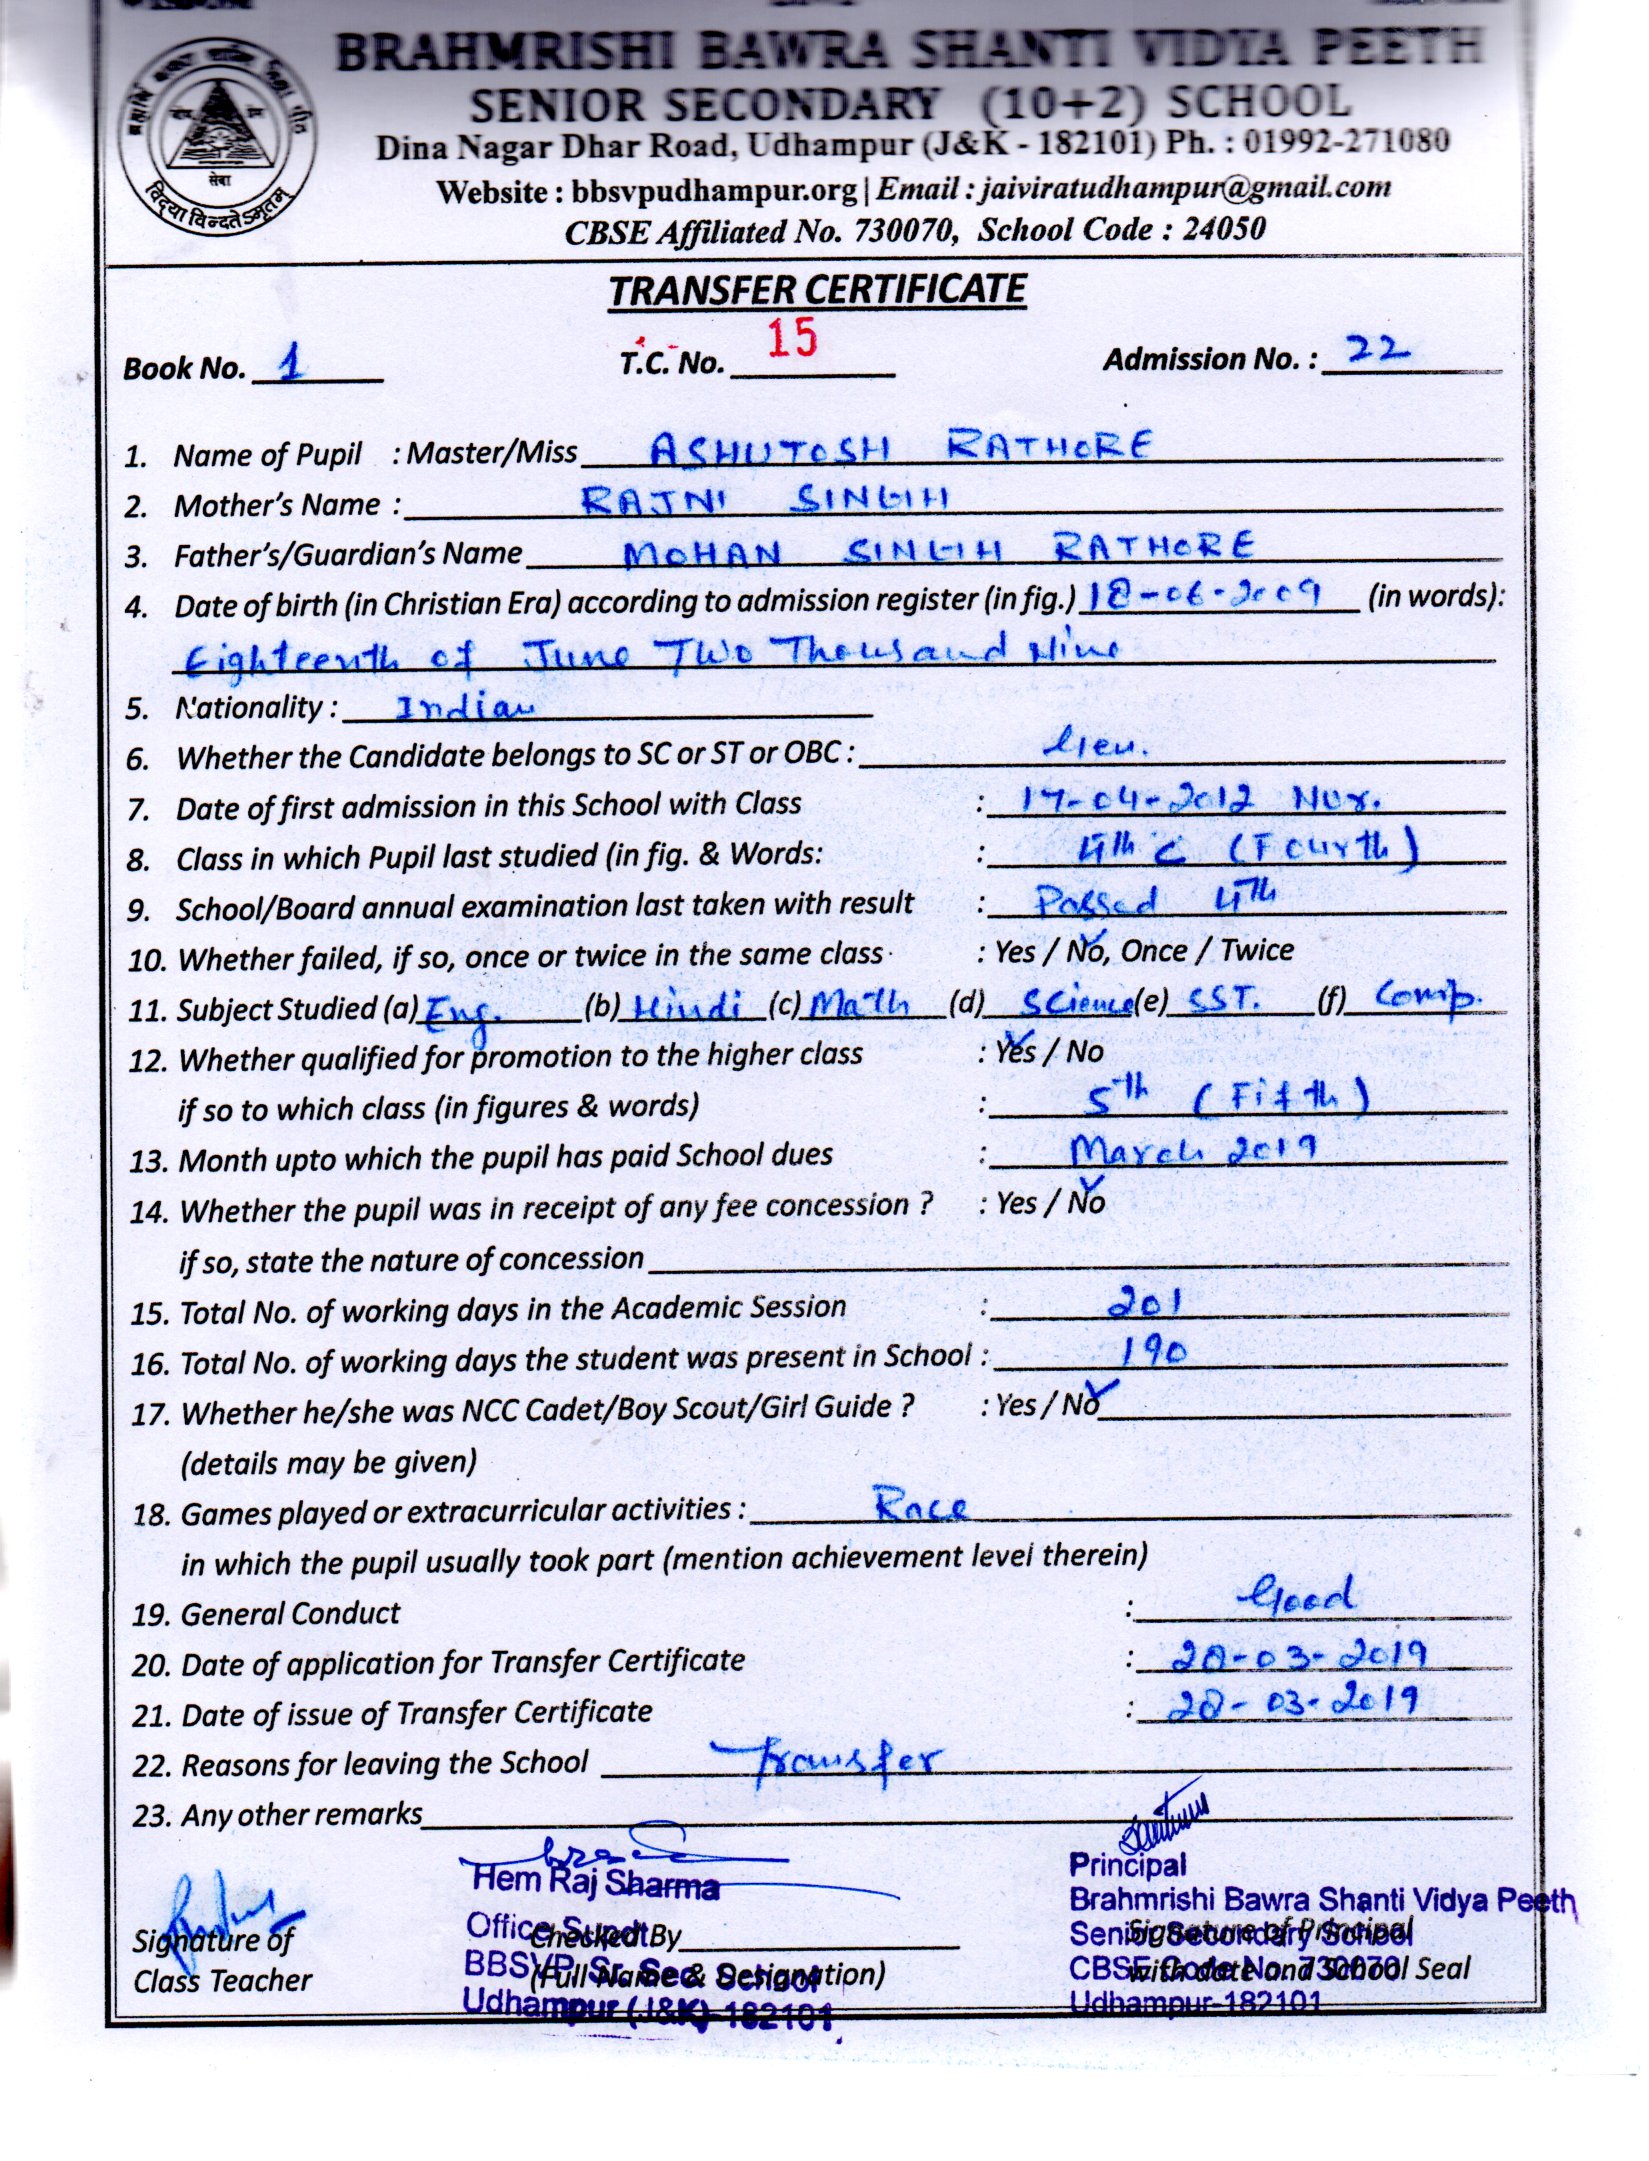 BRAHMRISHI BAWRA SHANTI VIDYA PEETH
SENIOR SECONDARY (10+2) SCHOOL
Dina Nagar Dhar Road, Udhampur (J&K - 182101) Ph. : 01992-271080
Website : bbsvpudhampur.org | Email : jaiviratudhampur@gmail.com
CBSE Affiliated No. 730070, School Code : 24050
सेवा
विद्या विन्दतेऽमृतम्
TRANSFER CERTIFICATE
Book No. 1 T.C. No. 15 Admission No. : 22
1. Name of Pupil : Master/Miss ASHUTOSH RATHORE
2. Mother's Name : RAJNI SINGH
3. Father's/Guardian's Name MOHAN SINGH RATHORE
4. Date of birth (in Christian Era) according to admission register (in fig.) 18-06-2009 (in words):
Eighteenth of June Two Thousand Nine
5. Nationality : Indian
6. Whether the Candidate belongs to SC or ST or OBC : Gen.
7. Date of first admission in this School with Class : 17-04-2012 Nur.
8. Class in which Pupil last studied (in fig. & Words: : 4th C (Fourth)
9. School/Board annual examination last taken with result : Passed 4th
10. Whether failed, if so, once or twice in the same class : Yes / No, Once / Twice
11. Subject Studied (a) Eng. (b) Hindi (c) Math (d) Science (e) SST. (f) Comp.
12. Whether qualified for promotion to the higher class : Yes / No
if so to which class (in figures & words) : 5th (Fifth)
13. Month upto which the pupil has paid School dues : March 2019
14. Whether the pupil was in receipt of any fee concession ? : Yes / No
if so, state the nature of concession
15. Total No. of working days in the Academic Session : 201
16. Total No. of working days the student was present in School : 190
17. Whether he/she was NCC Cadet/Boy Scout/Girl Guide ? : Yes / No
(details may be given)
18. Games played or extracurricular activities : Race
in which the pupil usually took part (mention achievement level therein)
19. General Conduct : Good
20. Date of application for Transfer Certificate : 28-03-2019
21. Date of issue of Transfer Certificate : 28-03-2019
22. Reasons for leaving the School Transfer
23. Any other remarks
Hem Raj Sharma
Office Supdt.
BBSVP Sr. Sec. School
Udhampur (J&K)-182101
Principal
Brahmrishi Bawra Shanti Vidya Peeth
Senior Secondary School
CBSE Code No. 730070
Udhampur-182101
Signature of
Class Teacher
Checked By
(Full Name & Designation)
Signature of Principal
with date and School Seal